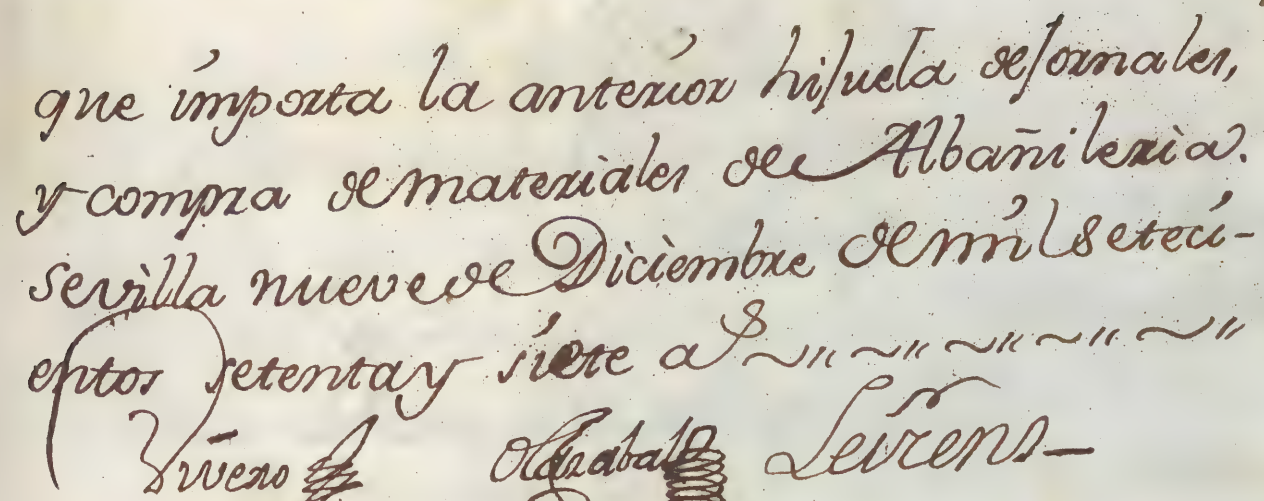 que importa la anterior hijuela de jornales,
y compra de materiales de Albañileria.
sevilla nueve de Diciembre de mil seteci-
entos setenta y siete a.s
Vivero Olazabal Leirens